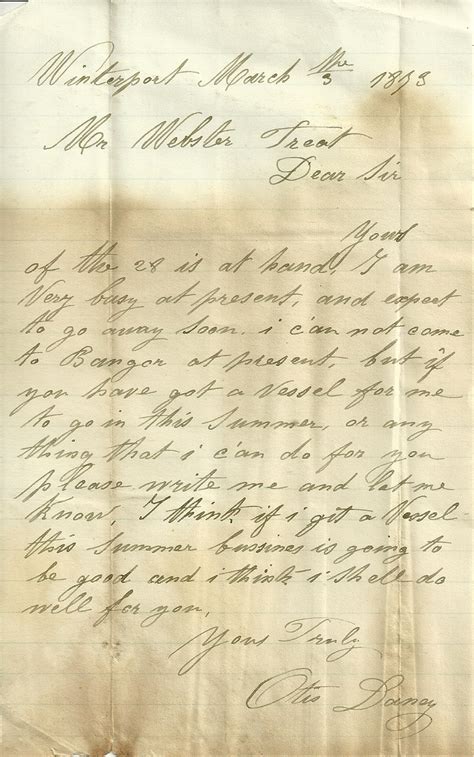 Winterport March the 3 1873
Mr Webster Treat
Dear Sir
Yours
of the 28 is at hand, I am
Very busy at present, and expect
to go away soon. i can not come
to Bangor at present, but if
you have got a Vessel for me
to go in this Summer, or any
thing that i can do for you
please write me and let me
Know, I think if i get a Vessel
this Summer bussines is going to
be good and i think i shell do
well for you,
Yous Truly
Otis